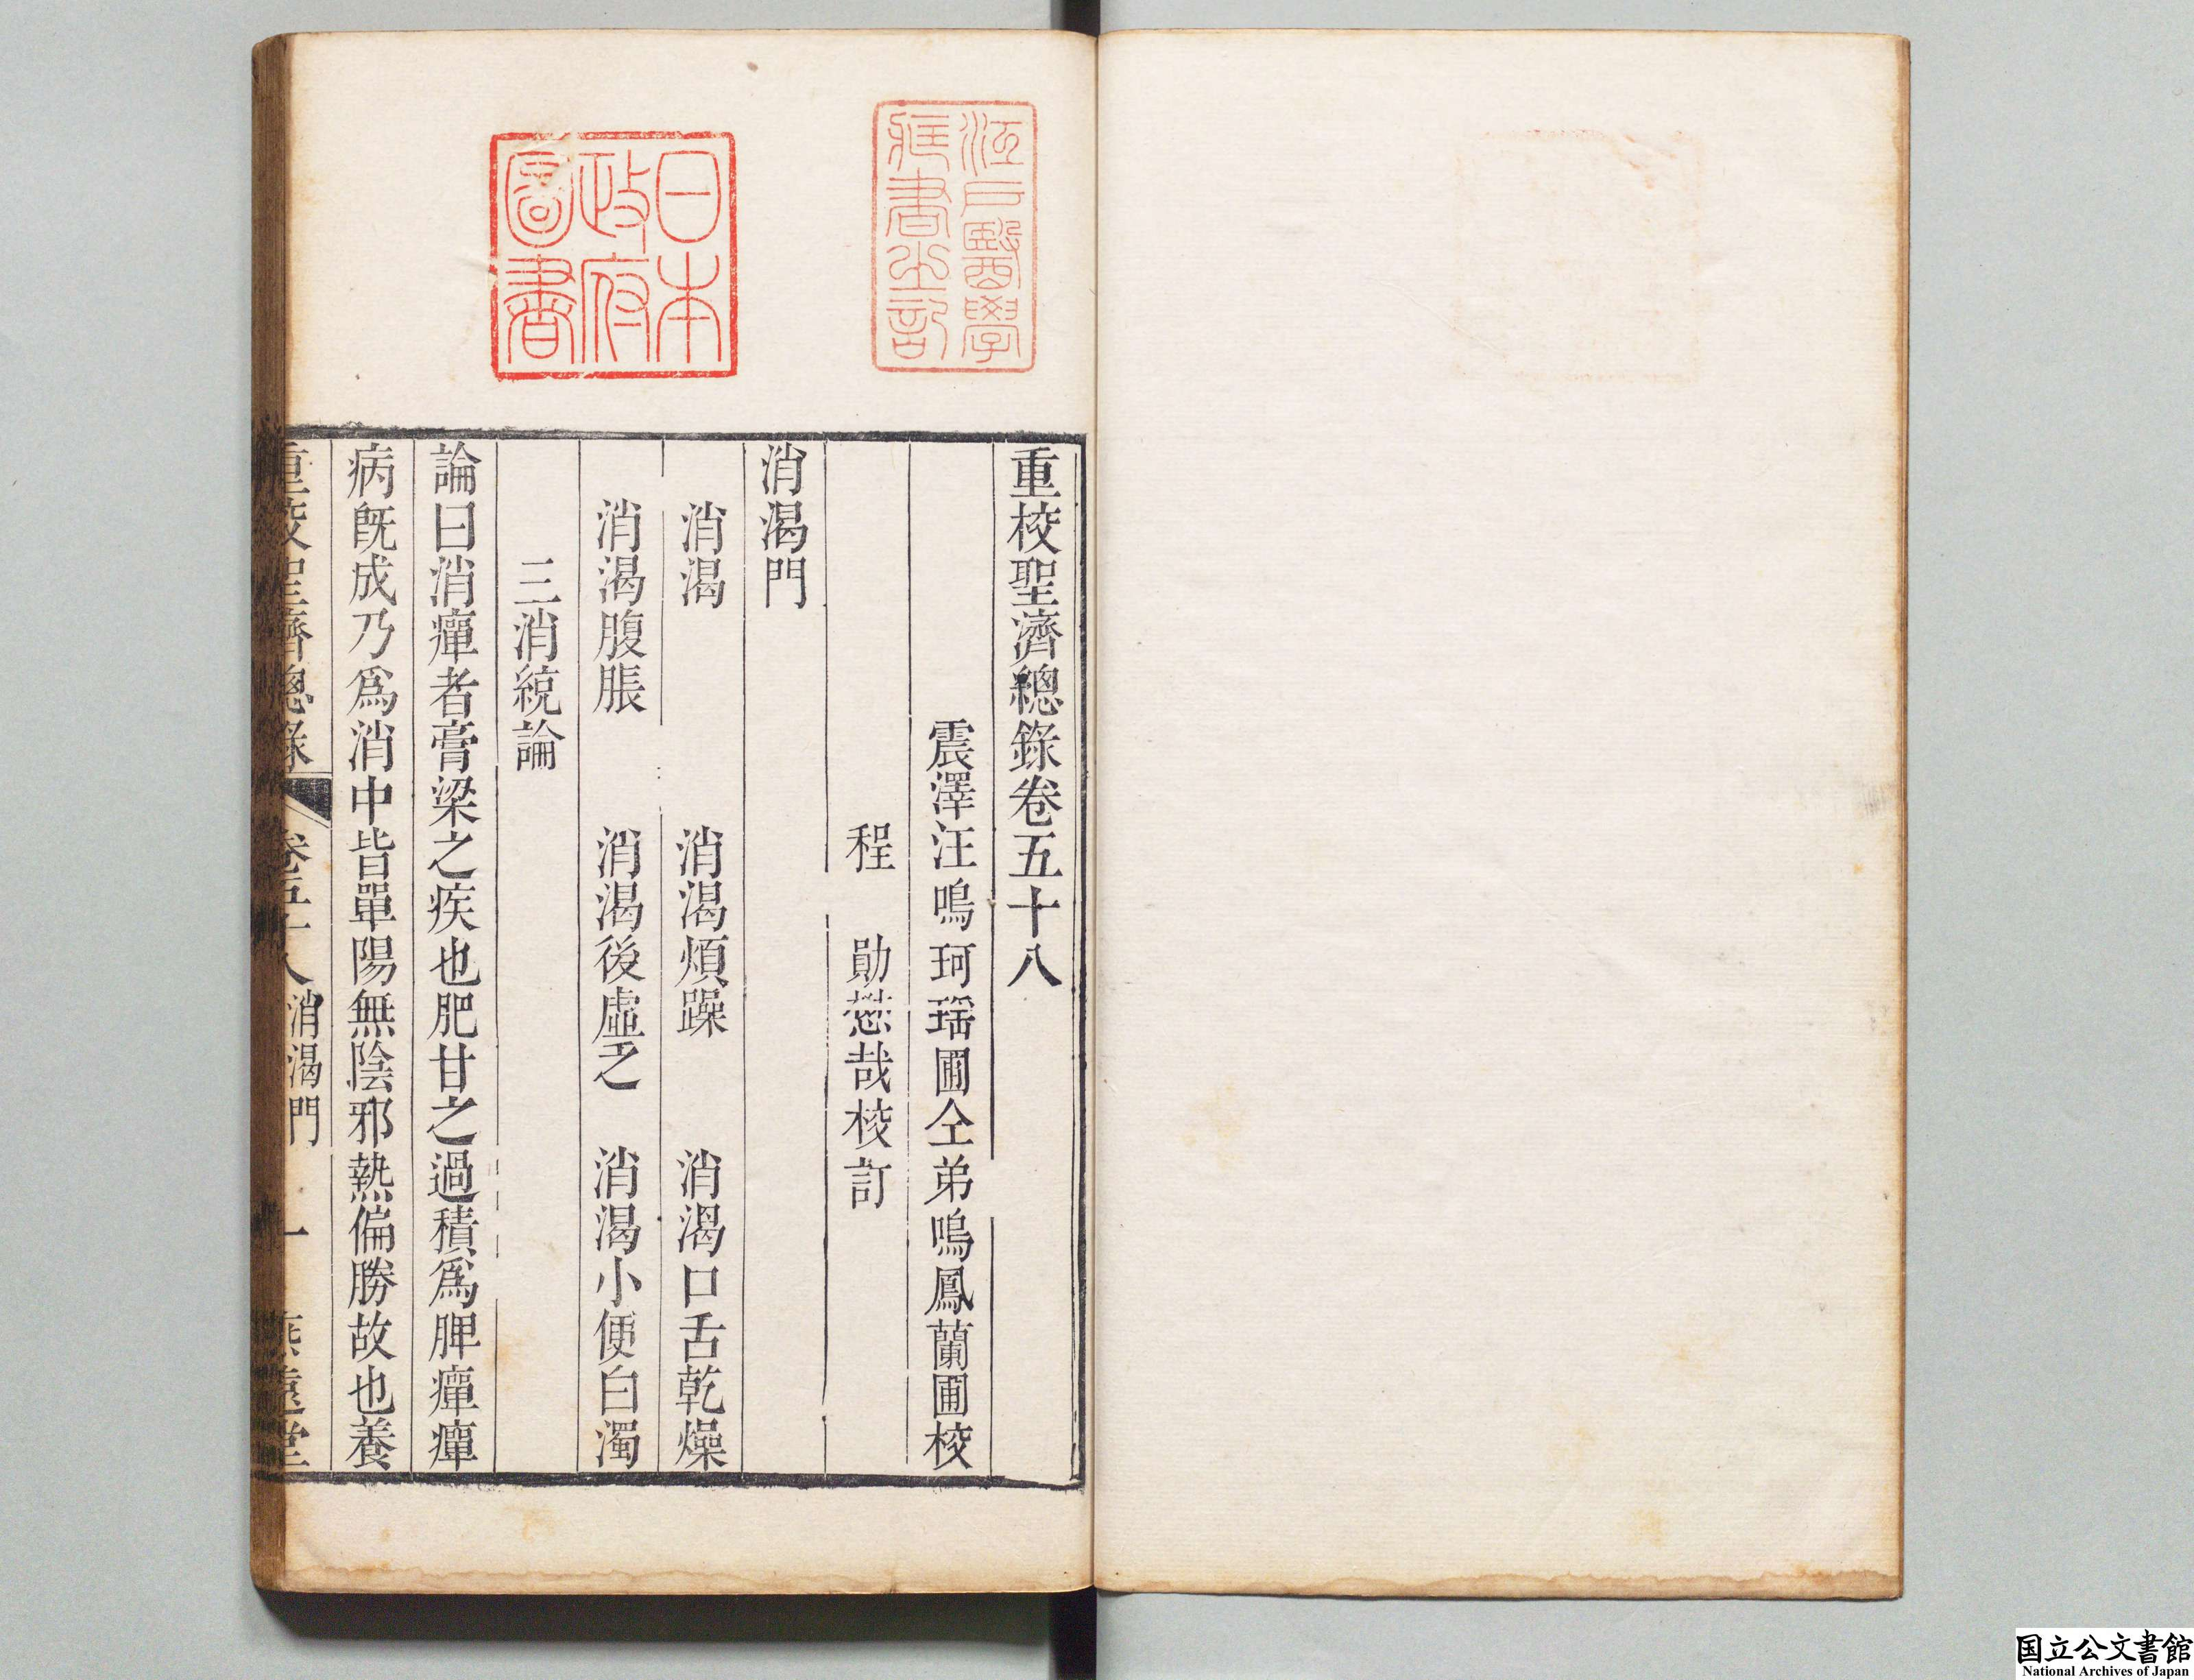 江戶醫學
藏書之記
日本
政府
圖書
重校聖濟總錄卷五十八
震澤汪鳴珂瑶圃仝弟鳴鳳蘭圃校
程 勛懋哉校訂
消渴門
消渴 消渴煩躁 消渴口舌乾燥
消渴腹脹 消渴後虛乏 消渴小便白濁
三消統論
論曰消癉者膏梁之疾也肥甘之過積爲脾癉癉
病旣成乃爲消中皆單陽無陰邪熱偏勝故也養
重校聖濟總錄 卷五十八 消渴門 一 燕遠堂
国立公文書館
National Archives of Japan